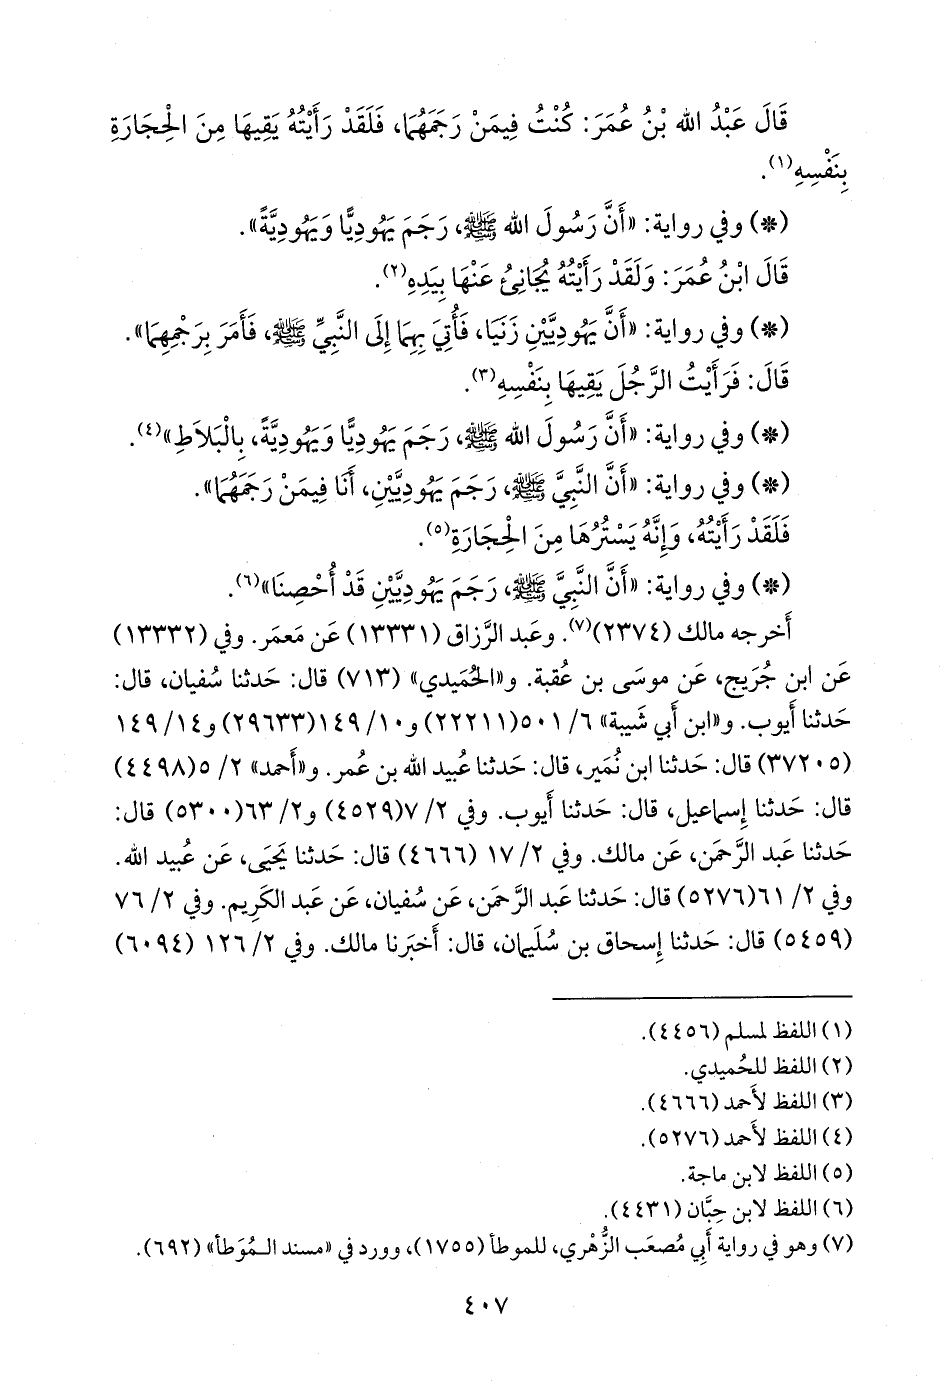 قَالَ عَبْدُ الله بْنُ عُمَرَ: كُنْتُ فِيمَنْ رَجَمَهُمَا، فَلَقَدْ رَأَيْتُهُ يَقِيهَا مِنَ الْحِجَارَةِ
بِنَفْسِهِ(١).
(*) وفي رواية: «أَنَّ رَسُولَ الله ﷺ، رَجَمَ يَهُودِيًّا وَيَهُودِيَّةً».
قَالَ ابْنُ عُمَرَ: وَلَقَدْ رَأَيْتُهُ يُجَانِئُ عَنْهَا بِيَدِهِ(٢).
(*) وفي رواية: «أَنَّ يَهُودِيَّيْنِ زَنَيَا، فَأُتِيَ بِهِمَا إِلَى النَّبِيِّ ﷺ، فَأَمَرَ بِرَجْمِهِمَا».
قَالَ: فَرَأَيْتُ الرَّجُلَ يَقِيهَا بِنَفْسِهِ(٣).
(*) وفي رواية: «أَنَّ رَسُولَ الله ﷺ، رَجَمَ يَهُودِيًّا وَيَهُودِيَّةً، بِالْبَلاَطِ»(٤).
(*) وفي رواية: «أَنَّ النَّبِيَّ ﷺ، رَجَمَ يَهُودِيَّيْنِ، أَنَا فِيمَنْ رَجَمَهُمَا».
فَلَقَدْ رَأَيْتُهُ، وَإِنَّهُ يَسْتُرُهَا مِنَ الْحِجَارَةِ(٥).
(*) وفي رواية: «أَنَّ النَّبِيَّ ﷺ، رَجَمَ يَهُودِيَّيْنِ قَدْ أُحْصِنَا»(٦).
أَخرجه مالك (٢٣٧٤)(٧). وعَبد الرَّزاق (١٣٣٣١) عَن مَعمَر. وفي (١٣٣٣٢)
عَن ابن جُرَيج، عَن موسَى بن عُقبة. و«الحُمَيدي» (٧١٣) قال: حَدثنا سُفيان، قال:
حَدثنا أَيوب. و«ابن أَبي شَيبة» ٦/ ٥٠١(٢٢٢١١) و١٠/ ١٤٩(٢٩٦٣٣) و١٤/ ١٤٩
(٣٧٢٠٥) قال: حَدثنا ابن نُمَير، قال: حَدثنا عُبيد الله بن عُمر. و«أَحمد» ٢/ ٥(٤٤٩٨)
قال: حَدثنا إِسماعيل، قال: حَدثنا أَيوب. وفي ٢/ ٧(٤٥٢٩) و٢/ ٦٣(٥٣٠٠) قال:
حَدثنا عَبد الرَّحمَن، عَن مالك. وفي ٢/ ١٧ (٤٦٦٦) قال: حَدثنا يَحيَى، عَن عُبيد الله.
وفي ٢/ ٦١(٥٢٧٦) قال: حَدثنا عَبد الرَّحمَن، عَن سُفيان، عَن عَبد الكَرِيم. وفي ٢/ ٧٦
(٥٤٥٩) قال: حَدثنا إِسحاق بن سُلَيمان، قال: أَخبَرنا مالك. وفي ٢/ ١٢٦ (٦٠٩٤)
(١) اللفظ لمسلم (٤٤٥٦).
(٢) اللفظ للحُميدي.
(٣) اللفظ لأَحمد (٤٦٦٦).
(٤) اللفظ لأَحمد (٥٢٧٦).
(٥) اللفظ لابن ماجة.
(٦) اللفظ لابن حِبَّان (٤٤٣١).
(٧) وهو في رواية أَبي مُصعَب الزُّهْري، للموطأ (١٧٥٥)، وورد في «مسند المُوَطأ» (٦٩٢).
٤٠٧